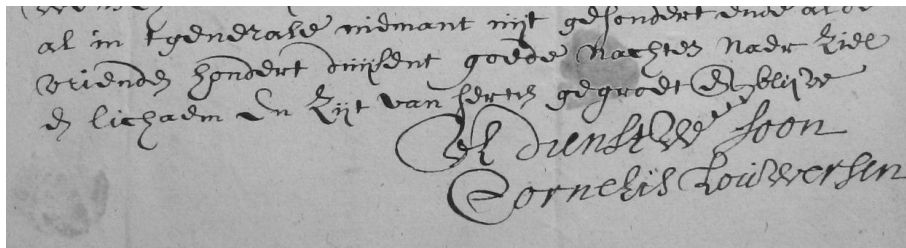 al in t generale niemant uijt gesondert ende al de
vrienden hondert duijsent goede nachten naer Ziel
en lichaem En Zijt van herten gegroet En blijve
Ul dienstwe soon
Cornelijs Louwersen